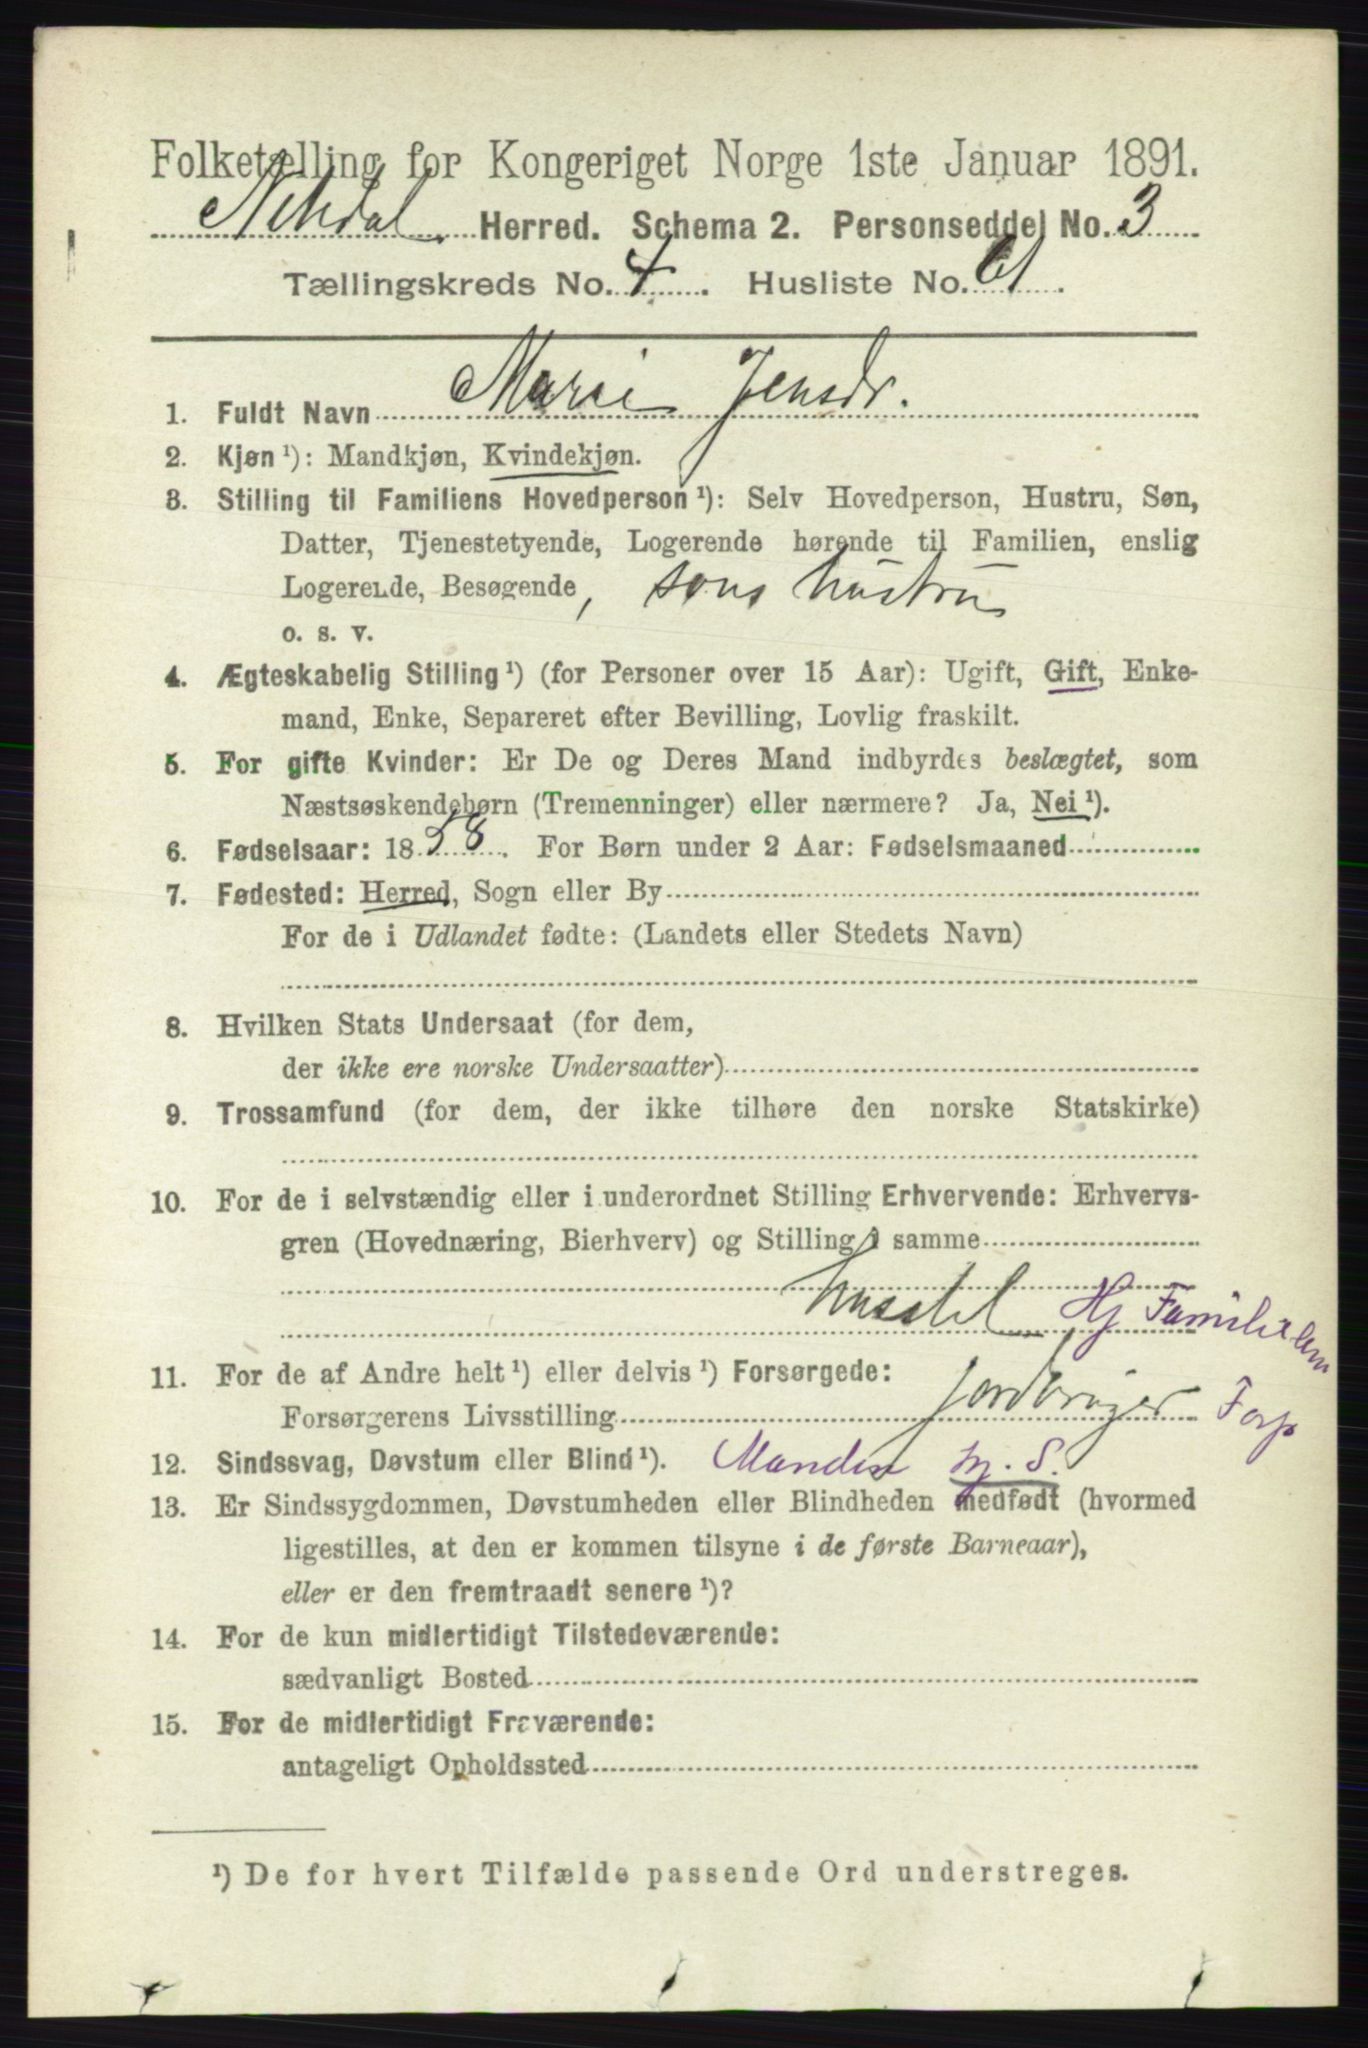 Folketælling for Kongeriget Norge 1ste Januar 1891.
Nitedal Herred. Schema 2. Personseddel No. 3
Tællingskreds No. 4. Husliste No. 61.
1. Fuldt Navn Marie Jensdr.
2. Kjøn ¹): Mandkjøn, Kvindekjøn.
3. Stilling til Familiens Hovedperson ¹): Selv Hovedperson, Hustru, Søn,
Datter, Tjenestetyende, Logerende hørende til Familien, enslig
Logerende, Besøgende, sons hustru
o. s. v.
4. Ægteskabelig Stilling ¹) (for Personer over 15 Aar): Ugift, Gift, Enke-
mand, Enke, Separeret efter Bevilling, Lovlig fraskilt.
5. For gifte Kvinder: Er De og Deres Mand indbyrdes beslægtet, som
Næstsøskendebørn (Tremenninger) eller nærmere? Ja, Nei ¹).
6. Fødselsaar: 1858. For Børn under 2 Aar: Fødselsmaaned
7. Fødested: Herred, Sogn eller By
For de i Udlandet fødte: (Landets eller Stedets Navn)
8. Hvilken Stats Undersaat (for dem,
der ikke ere norske Undersaatter)
9. Trossamfund (for dem, der ikke tilhøre den norske Statskirke)
10. For de i selvstændig eller i underordnet Stilling Erhvervende: Erhvervs-
gren (Hovednæring, Bierhverv) og Stilling i samme
husstel Hj Familielem
11. For de af Andre helt ¹) eller delvis ¹) Forsørgede:
Forsørgerens Livsstilling jordbruger Forp
12. Sindssvag, Døvstum eller Blind ¹). Manden hj. S.
13. Er Sindssygdommen, Døvstumheden eller Blindheden medfødt (hvormed
ligestilles, at den er kommen tilsyne i de første Barneaar),
eller er den fremtraadt senere ¹)?
14. For de kun midlertidigt Tilstedeværende:
sædvanligt Bosted
15. For de midlertidigt Fraværende:
antageligt Opholdssted
¹) De for hvert Tilfælde passende Ord understreges.